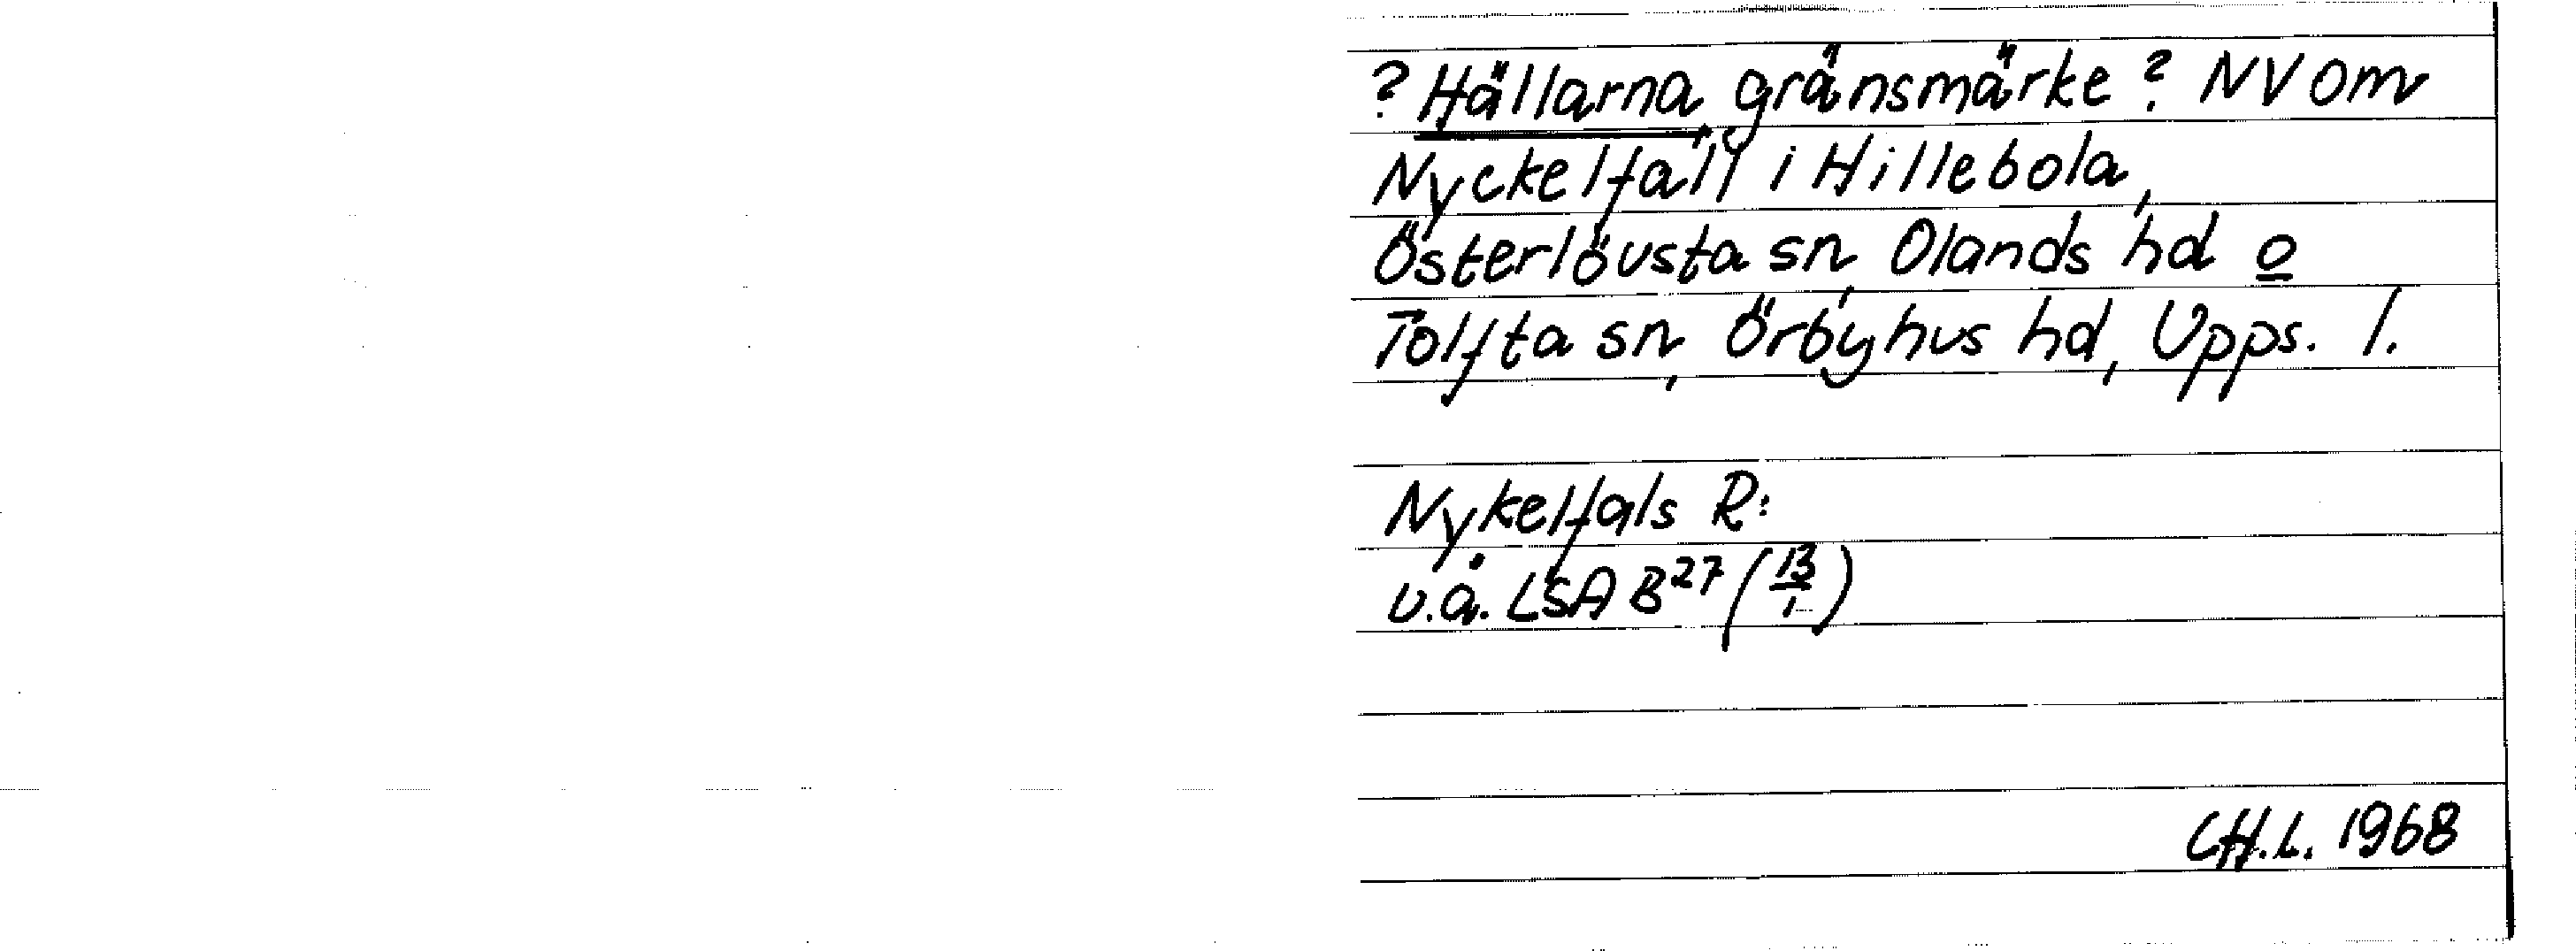 ? Hällarna, gränsmärke? NV om
Nyckelfall i Hillebola,
Österlövsta sn, Olands hd o
Tolfta sn, Örbyhus hd, Upps. l.
Nykelfals R:
u.å. LSA B27 (13/1)
CH.L. 1968